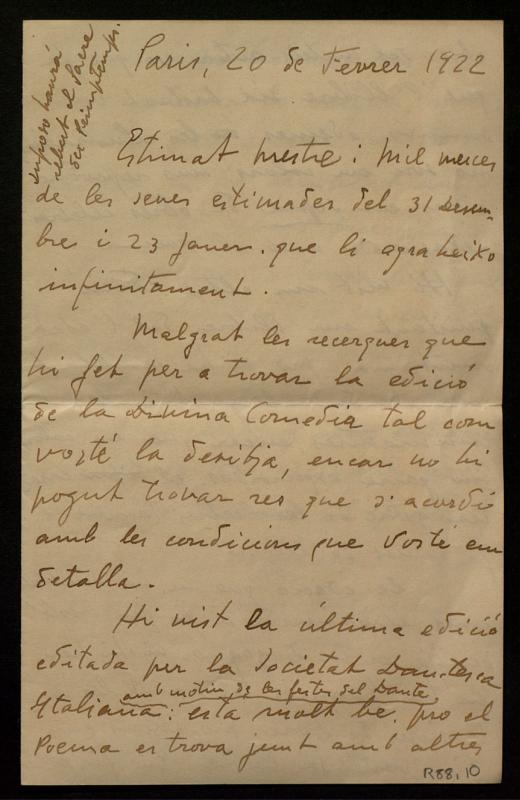 suposo haurá
rebut el Sacre
du Printemps.
Paris, 20 de Febrer 1922
Estimat mestre i mil merces
de les seves estimades del 31 Desem-
bre i 23 Janer. que li agraheixo
infinitament.
Malgrat les recerques que
hi fet per a trovar la edició
de la Divina Comedia tal com
vosté la desitja, encar no hi
pogut trovar res que s'acordi
amb les condicions que Vosté em
detalla.
Hi vist la última edició
editada per la Societat Dantesca
amb motiu de les festes del Dante,
Italiana: esta molt be. pro el
Poema es trova junt amb altres
R88,10